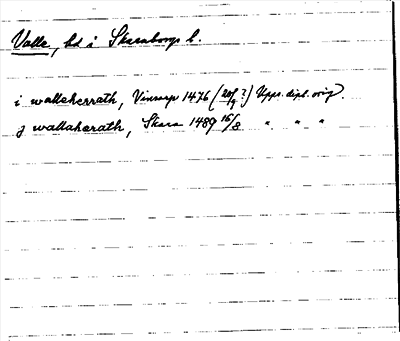 Valle, hd i Skaraborgs l.
i walleherrath, Vinsarp 1476 (20/9?) Upps. dipl. orig.
j wallahæradh, Skara 1489 16/8 " " "